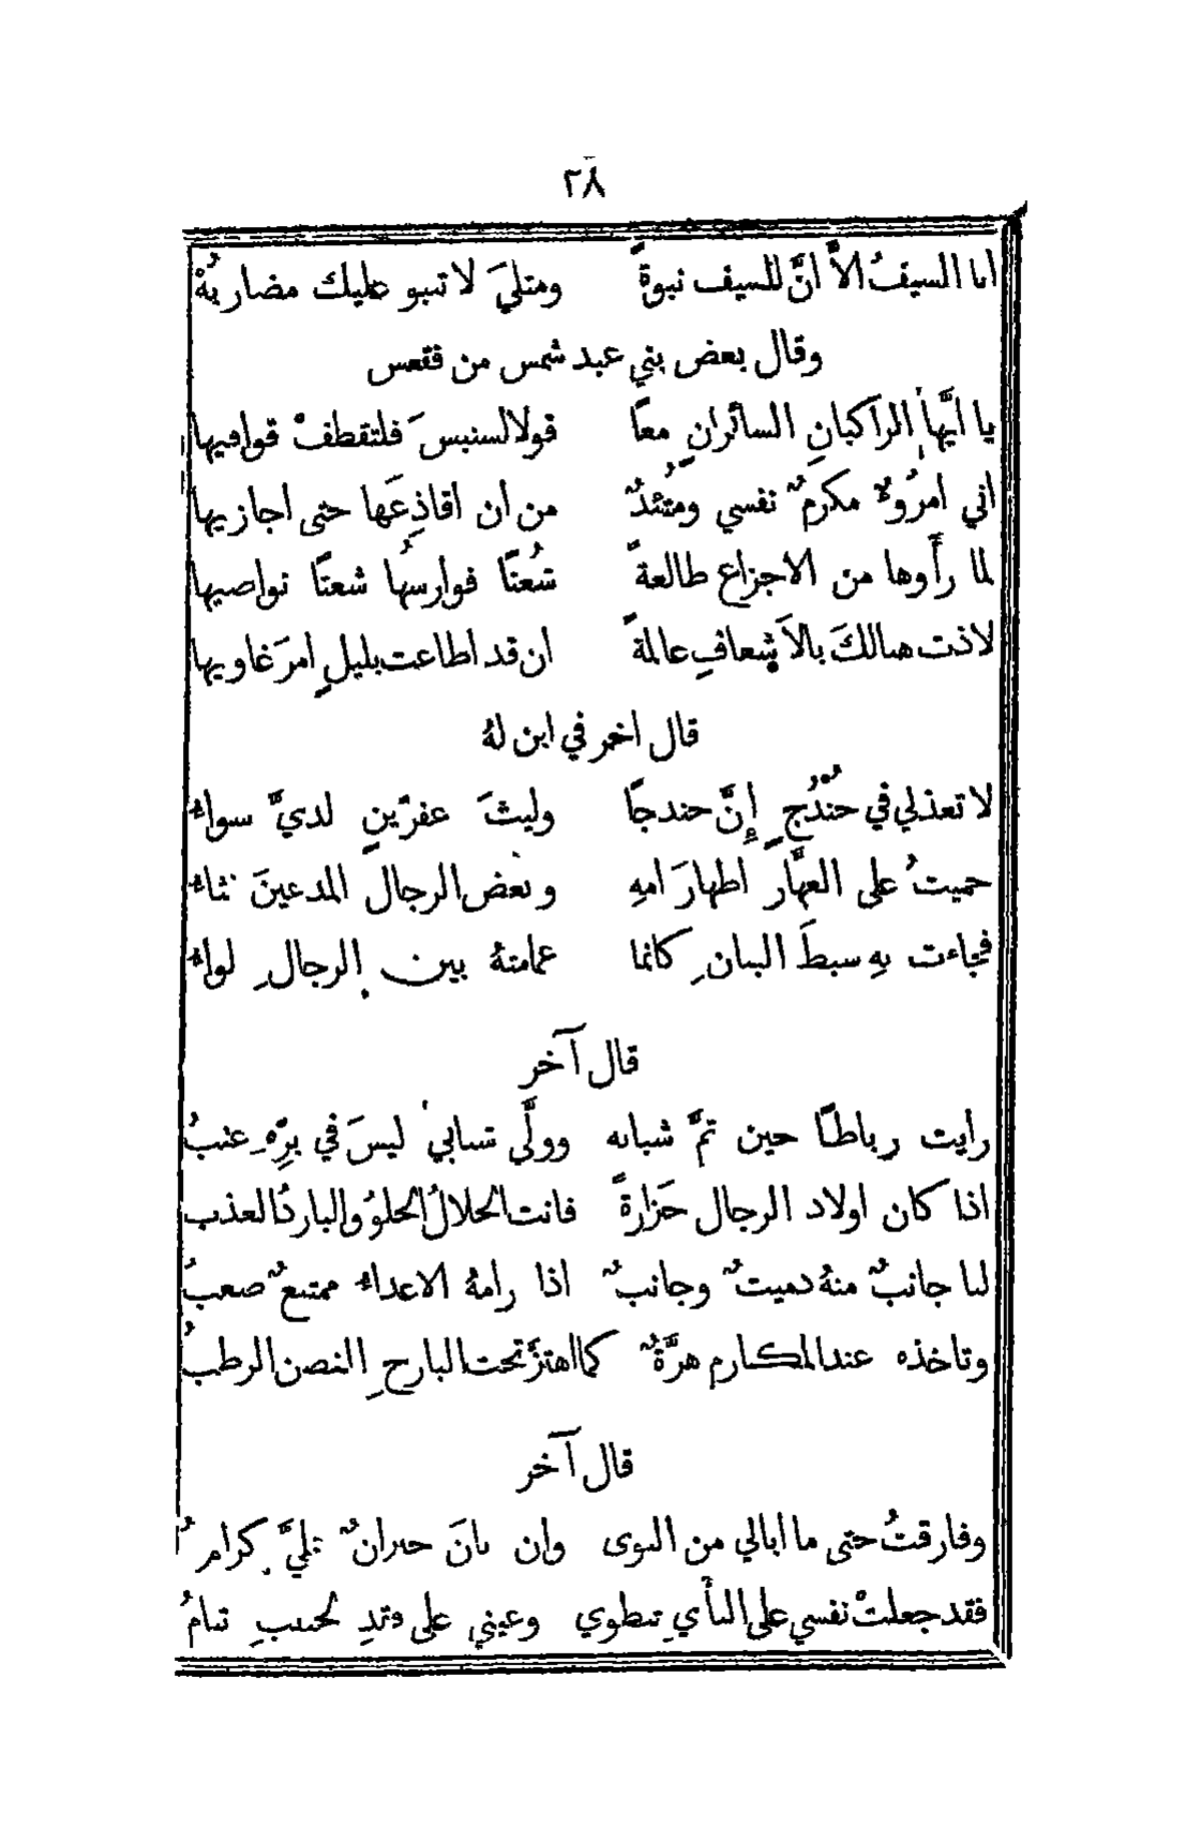 ٢٨
انا السيفُ الاَّ انَّ للسيف نبوةً ومثليَ لا تنبو عليك مضاربُهْ
وقال بعض بني عبد شمس من فقعس
يا ايُّها الراكبانِ السائرانِ معًا قولا لسنبسَ فلتقطفْ قوافيها
اني امرُوءٌ مكرمٌ نفسي ومُتئدٌ من أن اقاذِعَها حتى اجازيها
لما رأَوها من الاجزاع طالعةً شُعثًا فوارسهُا شعثًا نواصيها
لاذت هنالكَ بالاَشعافِ عالمةً ان قد اطاعت بليلٍ امرَ غاويها
قال اخر في ابن لهُ
لا تعذلي في حُندُجٍ إِنَّ حندجًا وليثَ عفرّينٍ لديَّ سواءُ
حميتُ على العهَّار اطهارَ امهِ وبعض الرجال المدعينَ غثاءُ
فجاءت بهِ سبطَ البنانِ كانما عمامتهُ بين الرجالِ لواءُ
قال آخر
رايت رباطًا حين تمَّ شبابه وولَّى شبابي ليسَ في برِّهِ عتبُ
اذا كان اولاد الرجال حَزازةً فانت الحلالُ الحلوُ والباردُ العذب
لنا جانبٌ منهُ دميثٌ وجانبٌ اذا رامهُ الاعداءُ ممتنعٌ صعبُ
وتاخذه عند المكارم هزَّةٌ كما اهتزَّ تحت البارحِ الغصن الرطبُ
قال آخر
وفارقتُ حتى ما ابالي من النوى وان بانَ جيرانٌ عليَّ كرامُ
فقد جعلتْ نفسي على النأْيِ تنطوي وعيني على فقدِ لحبيبِ تنامُ